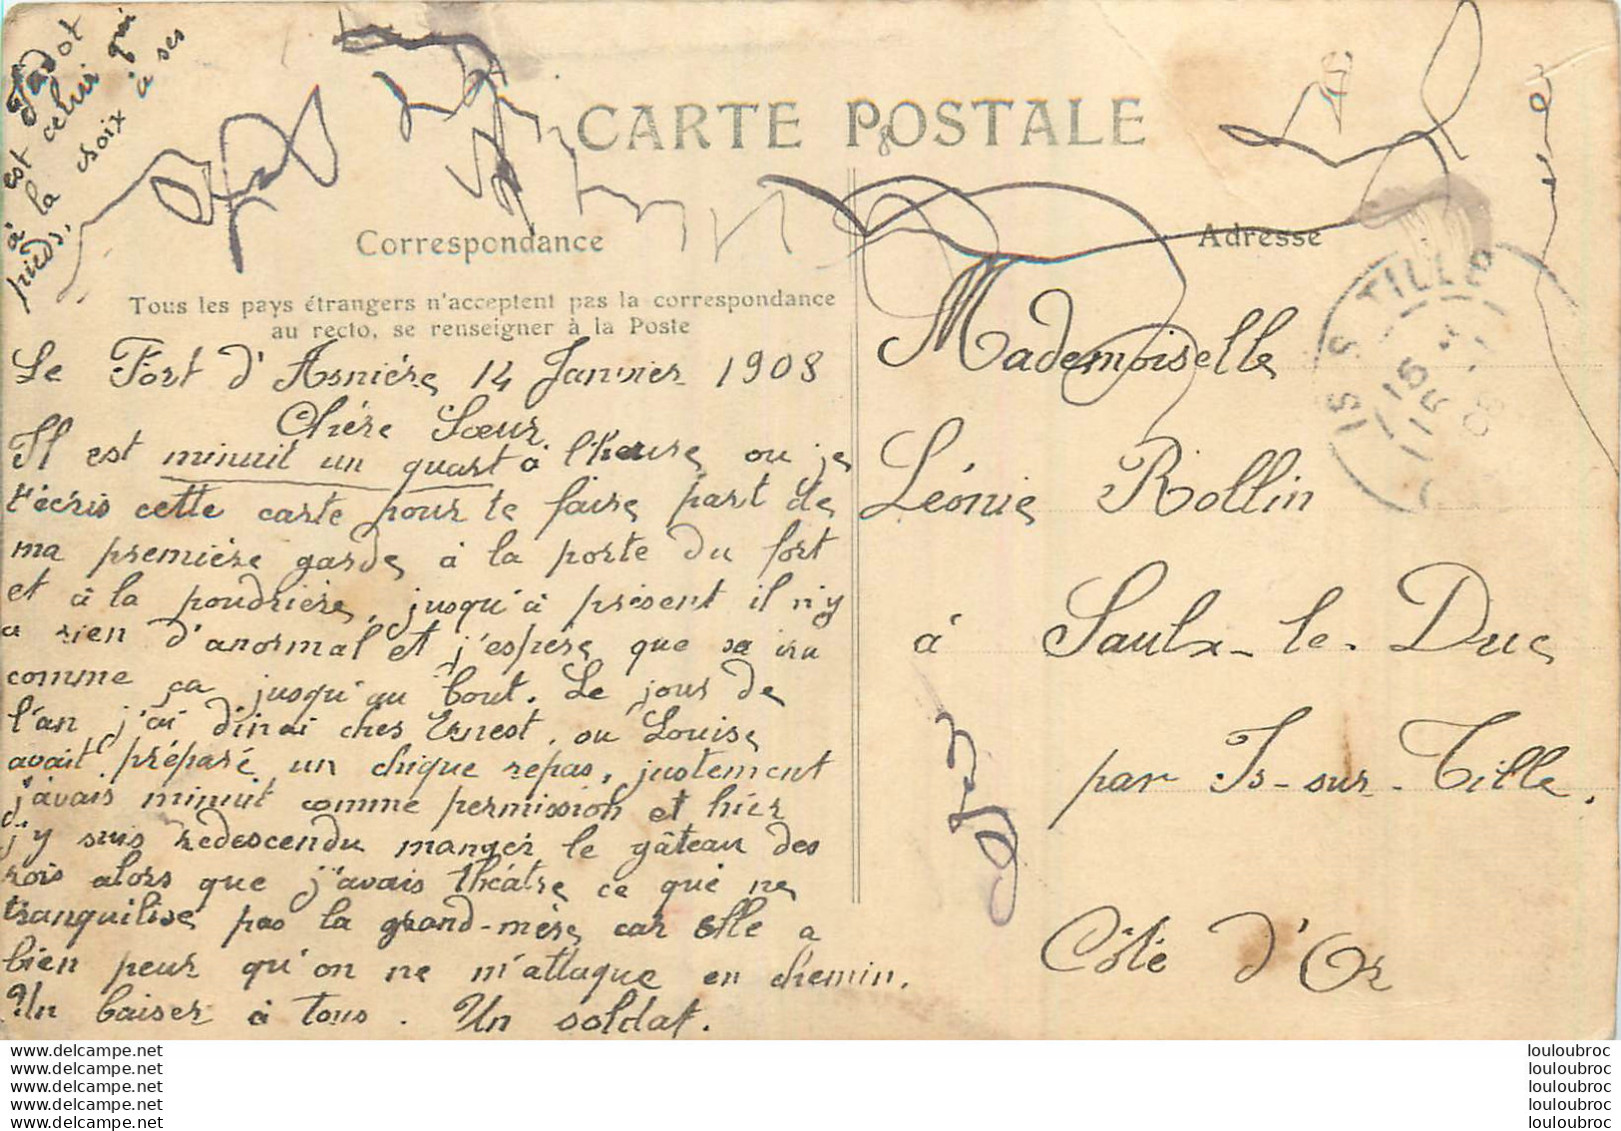 Jadot
est celui qui
à la croix à ses
pieds.
CARTE POSTALE
Correspondance
Adresse
Tous les pays étrangers n'acceptent pas la correspondance
au recto, se renseigner à la Poste
Le Fort d'Asnière 14 Janvier 1908
Chére Sœur.
Il est minuit un quart à l'heure ou je
t'écris cette carte pour te faire part de
ma première garde à la porte du fort
et à la poudrière, jusqu'à présent il n'y
a rien d'anormal et j'espère que sa ira
comme ça jusqu'au bout. Le jour de
l'an j'ai dinai ches Ernest, ou Louise
avait préparé un chique repas, justement
j'avais minuit comme permission et hier
j'y suis redescendu manger le gâteau des
rois alors que j'avais théâtre ce que ne
tranquilise pas la grand-mère car elle a
bien peur qu'on ne m'attaque en chemin.
Un baiser à tous. Un soldat.
Mademoiselle
Léonie Rollin
à Saulx-le-Duc
par Is-sur-Tille.
Côte d'Or
IS S TILLE
16
15
08
www.delcampe.net
www.delcampe.net
www.delcampe.net
www.delcampe.net
www.delcampe.net
louloubroc
louloubroc
louloubroc
louloubroc
louloubroc